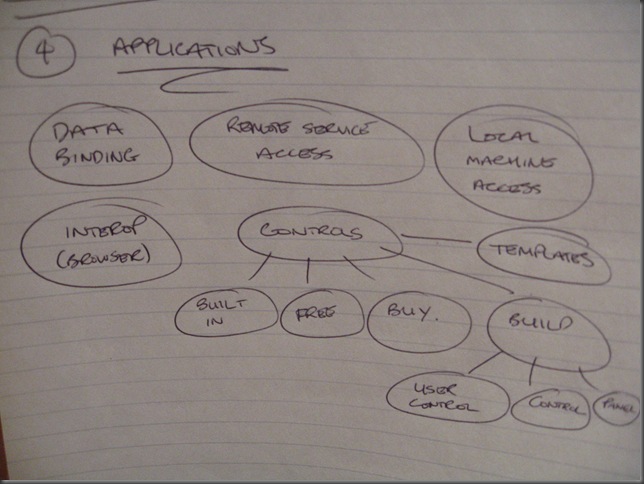 4 APPLICATIONS
DATA
BINDING
REMOTE SERVICE
ACCESS
LOCAL
MACHINE
ACCESS
INTEROP
(BROWSER)
CONTROLS
TEMPLATES
BUILT
IN
FREE
BUY.
BUILD
USER
CONTROL
CONTROL
PANEL